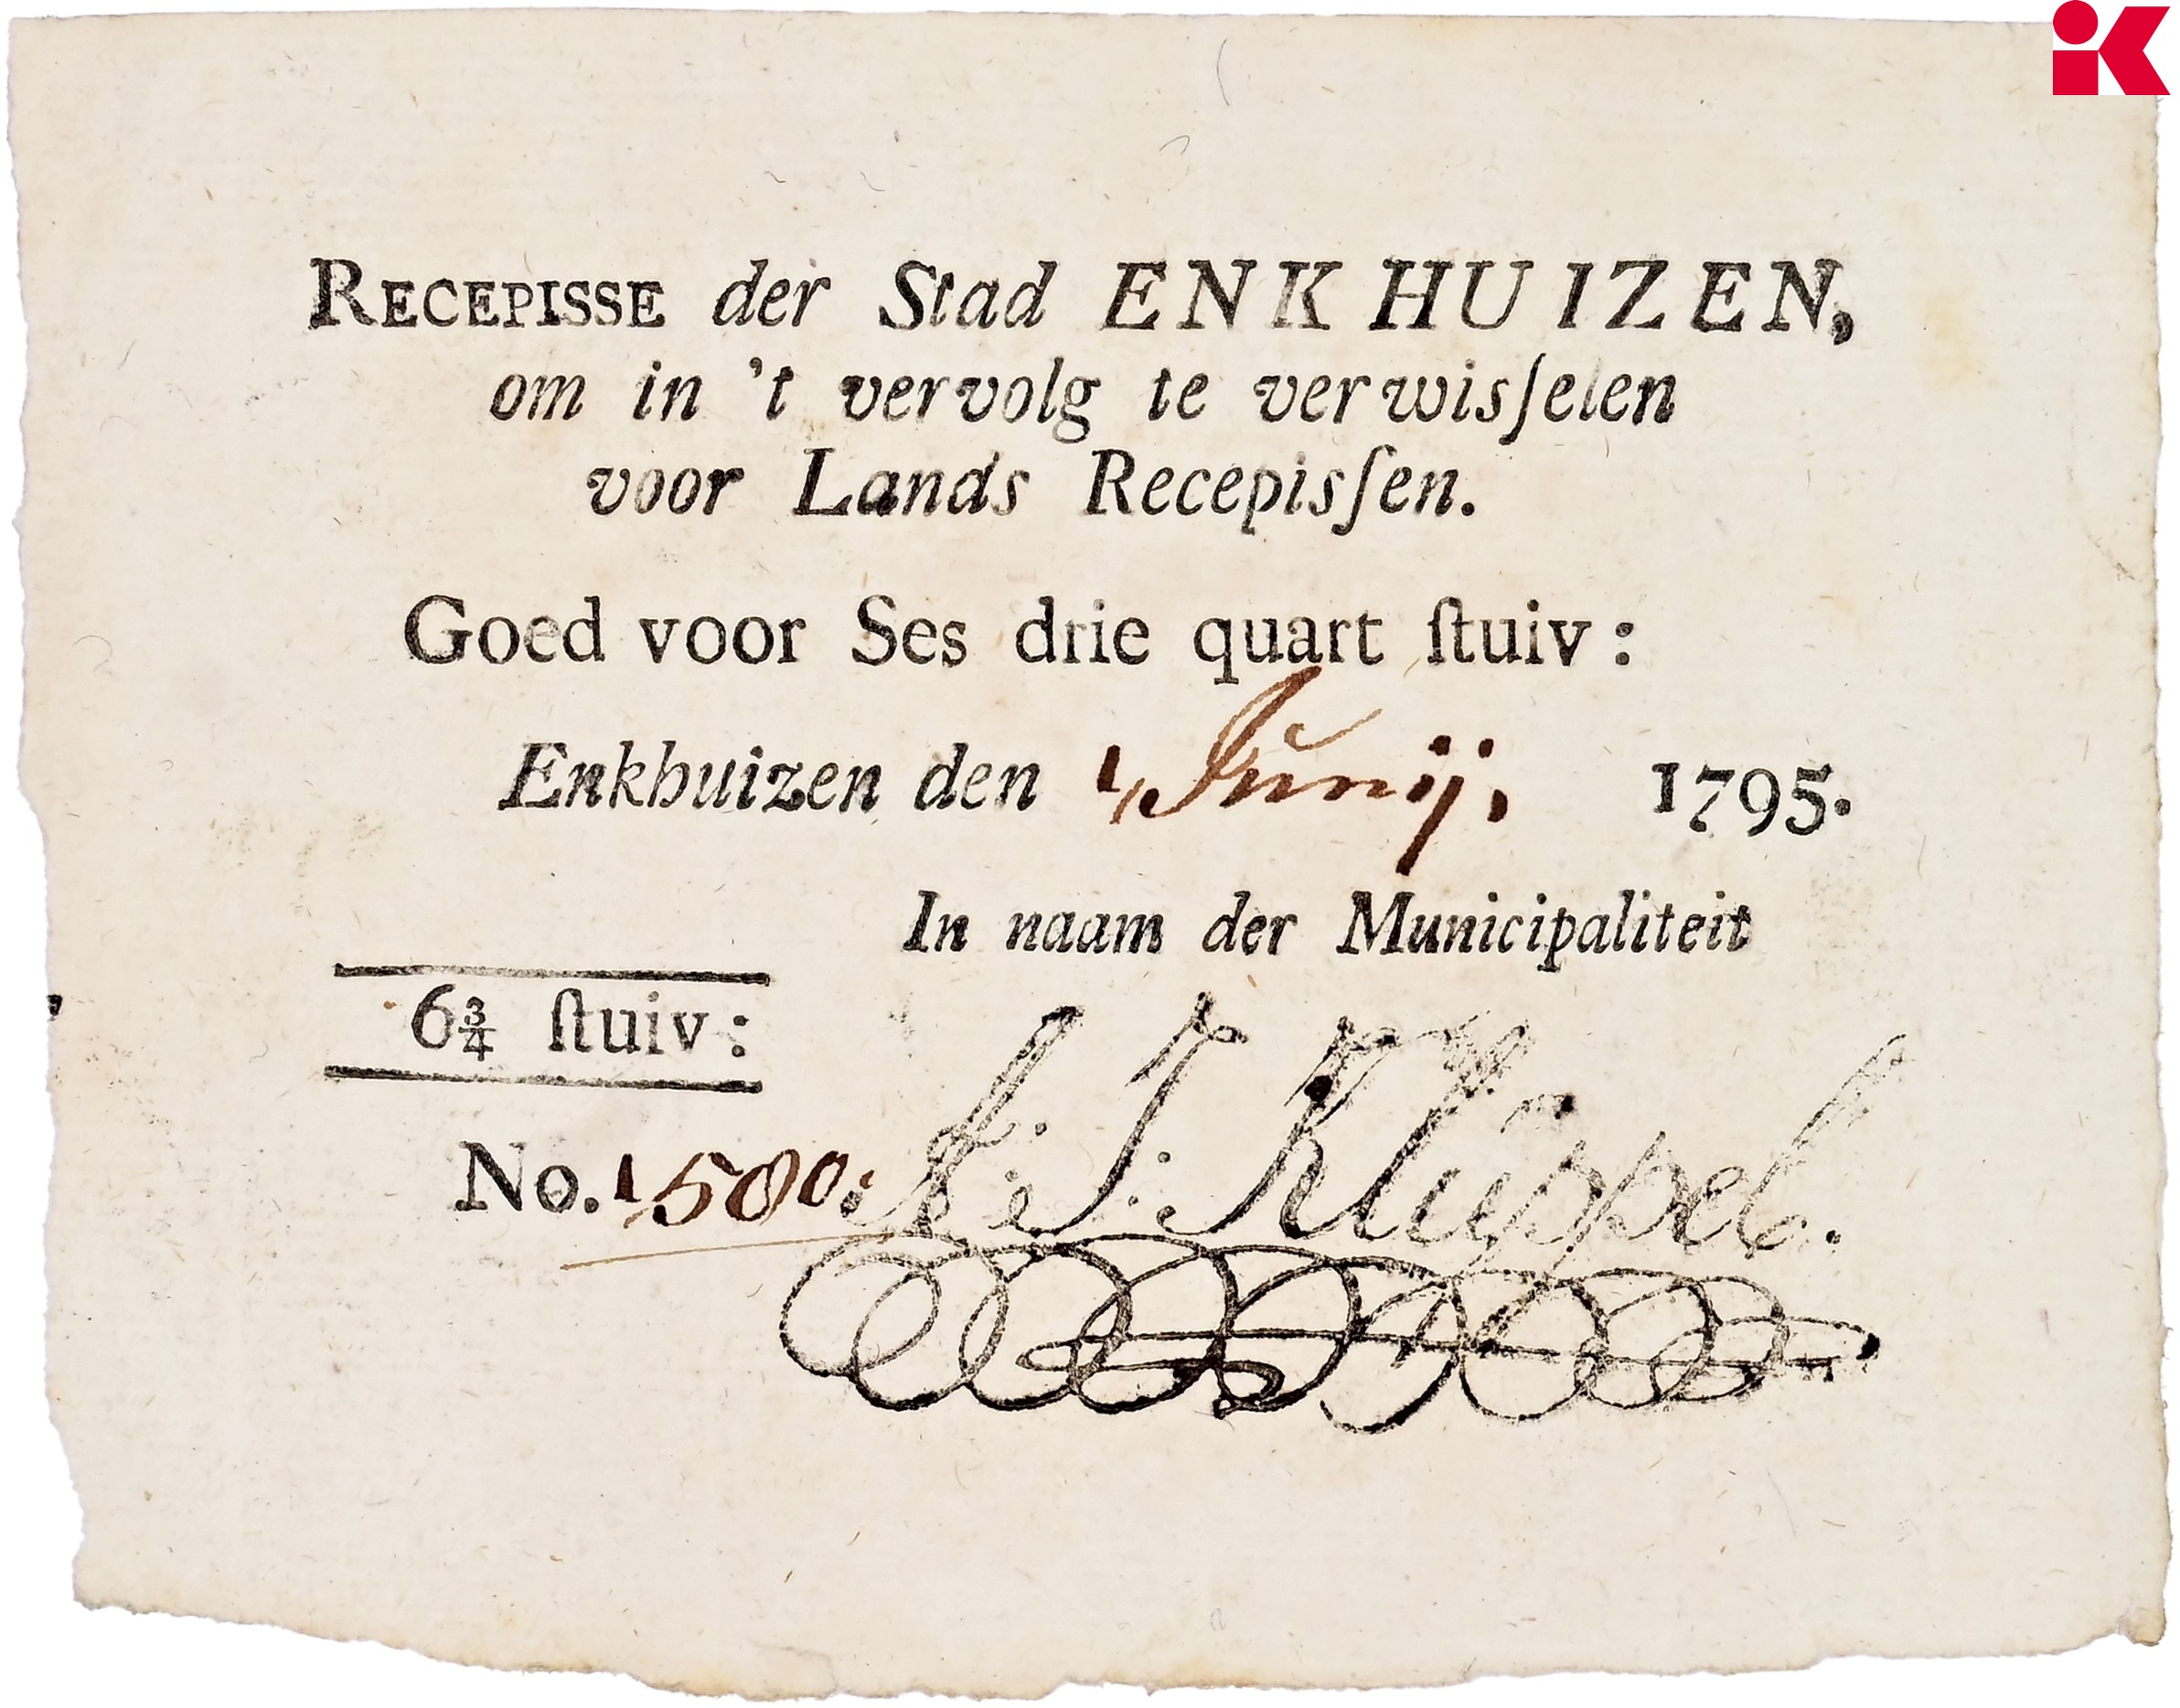 RECEPISSE der Stad ENKHUIZEN,
om in 't vervolg te verwisſelen
voor Lands Recepisſen.
Goed voor Ses drie quart ſtuiv:
Enkhuizen den 1 Junij, 1795.
In naam der Municipaliteit
6¾ ſtuiv:
No. 1500: J: Kluppel.